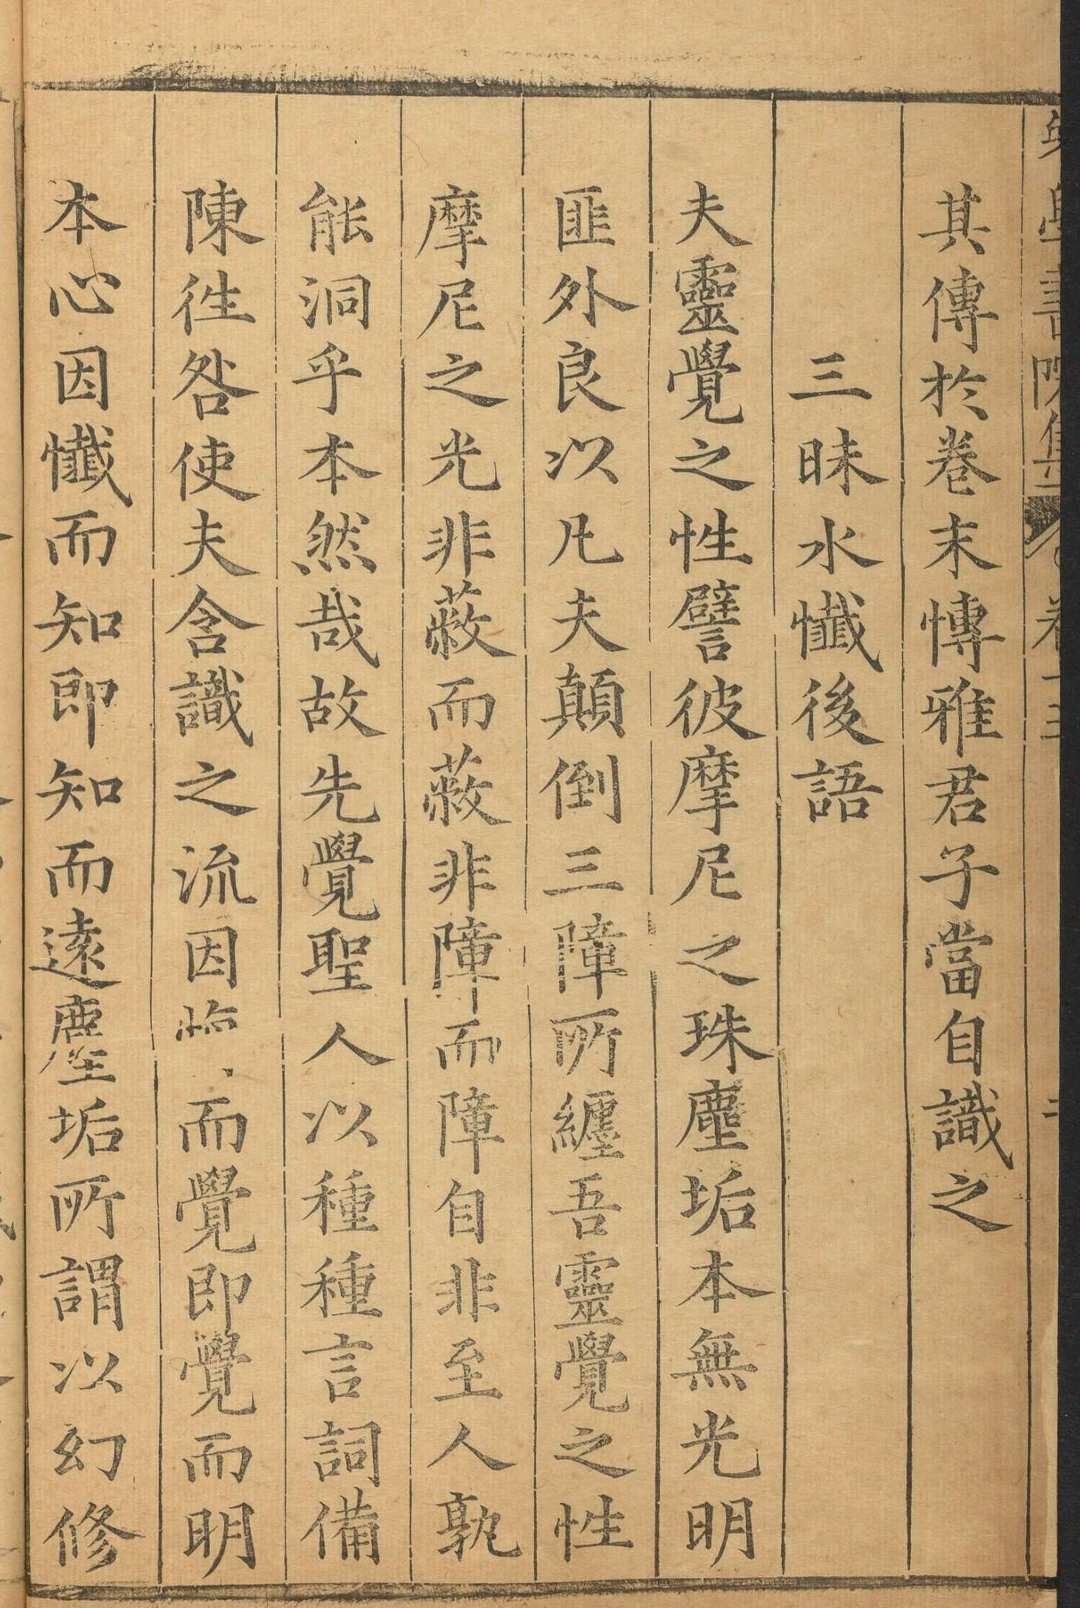 學書院集 卷十三
其傳於卷末愽雅君子當自識之
三昧水懺後語
夫靈覺之性譬彼摩尼之珠塵垢本無光明
匪外良以凡夫顛倒三障所纏吾靈覺之性
摩尼之光非蔽而蔽非障而障自非至人孰
能洞乎本然哉故先覺聖人以種種言詞備
陳徃咎使夫含識之流因而覺即覺而明
本心因懺而知即知而遠塵垢所謂以幻修